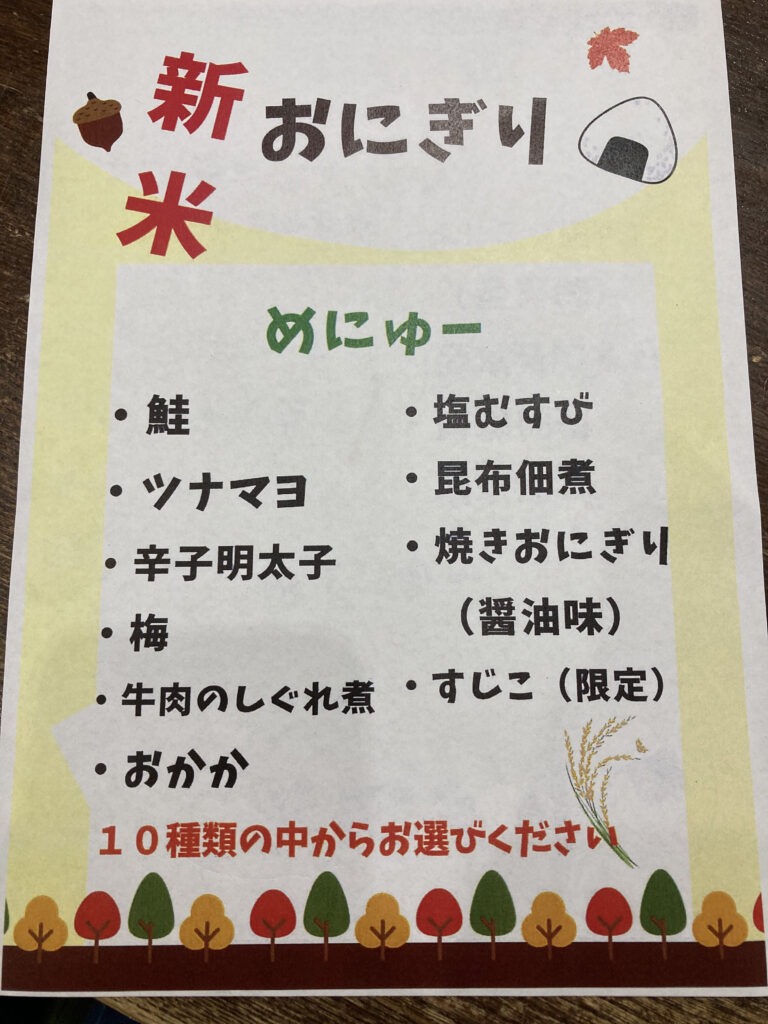 新米
おにぎり
めにゅー
・鮭
・ツナマヨ
・辛子明太子
・梅
・牛肉のしぐれ煮
・おかか
・塩むすび
・昆布佃煮
・焼きおにぎり
（醤油味）
・すじこ（限定）
１０種類の中からお選びください